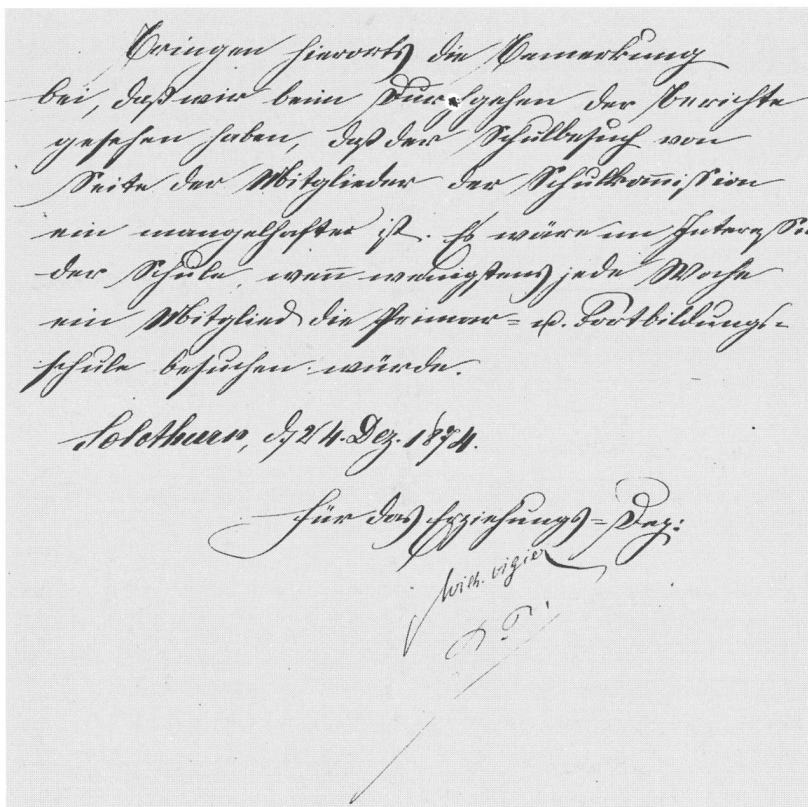 Bringen hierorts die Bemerkung
bei, daß wir beim Durchgehen der Berichte
gesehen haben, daß der Schulbesuch von
Seite der Mitglieder der Schulkom̅ission
ein mangelhafter ist. Es wäre im Interesse
der Schule, wen̅ wenigstens jede Woche
ein Mitglied die Primar= u. Fortbildungs=
schule besuchen würde.
Solothurn, d. 24. Dez. 1874.
Für das Erziehungs=Dep:
Wilh. Vigier